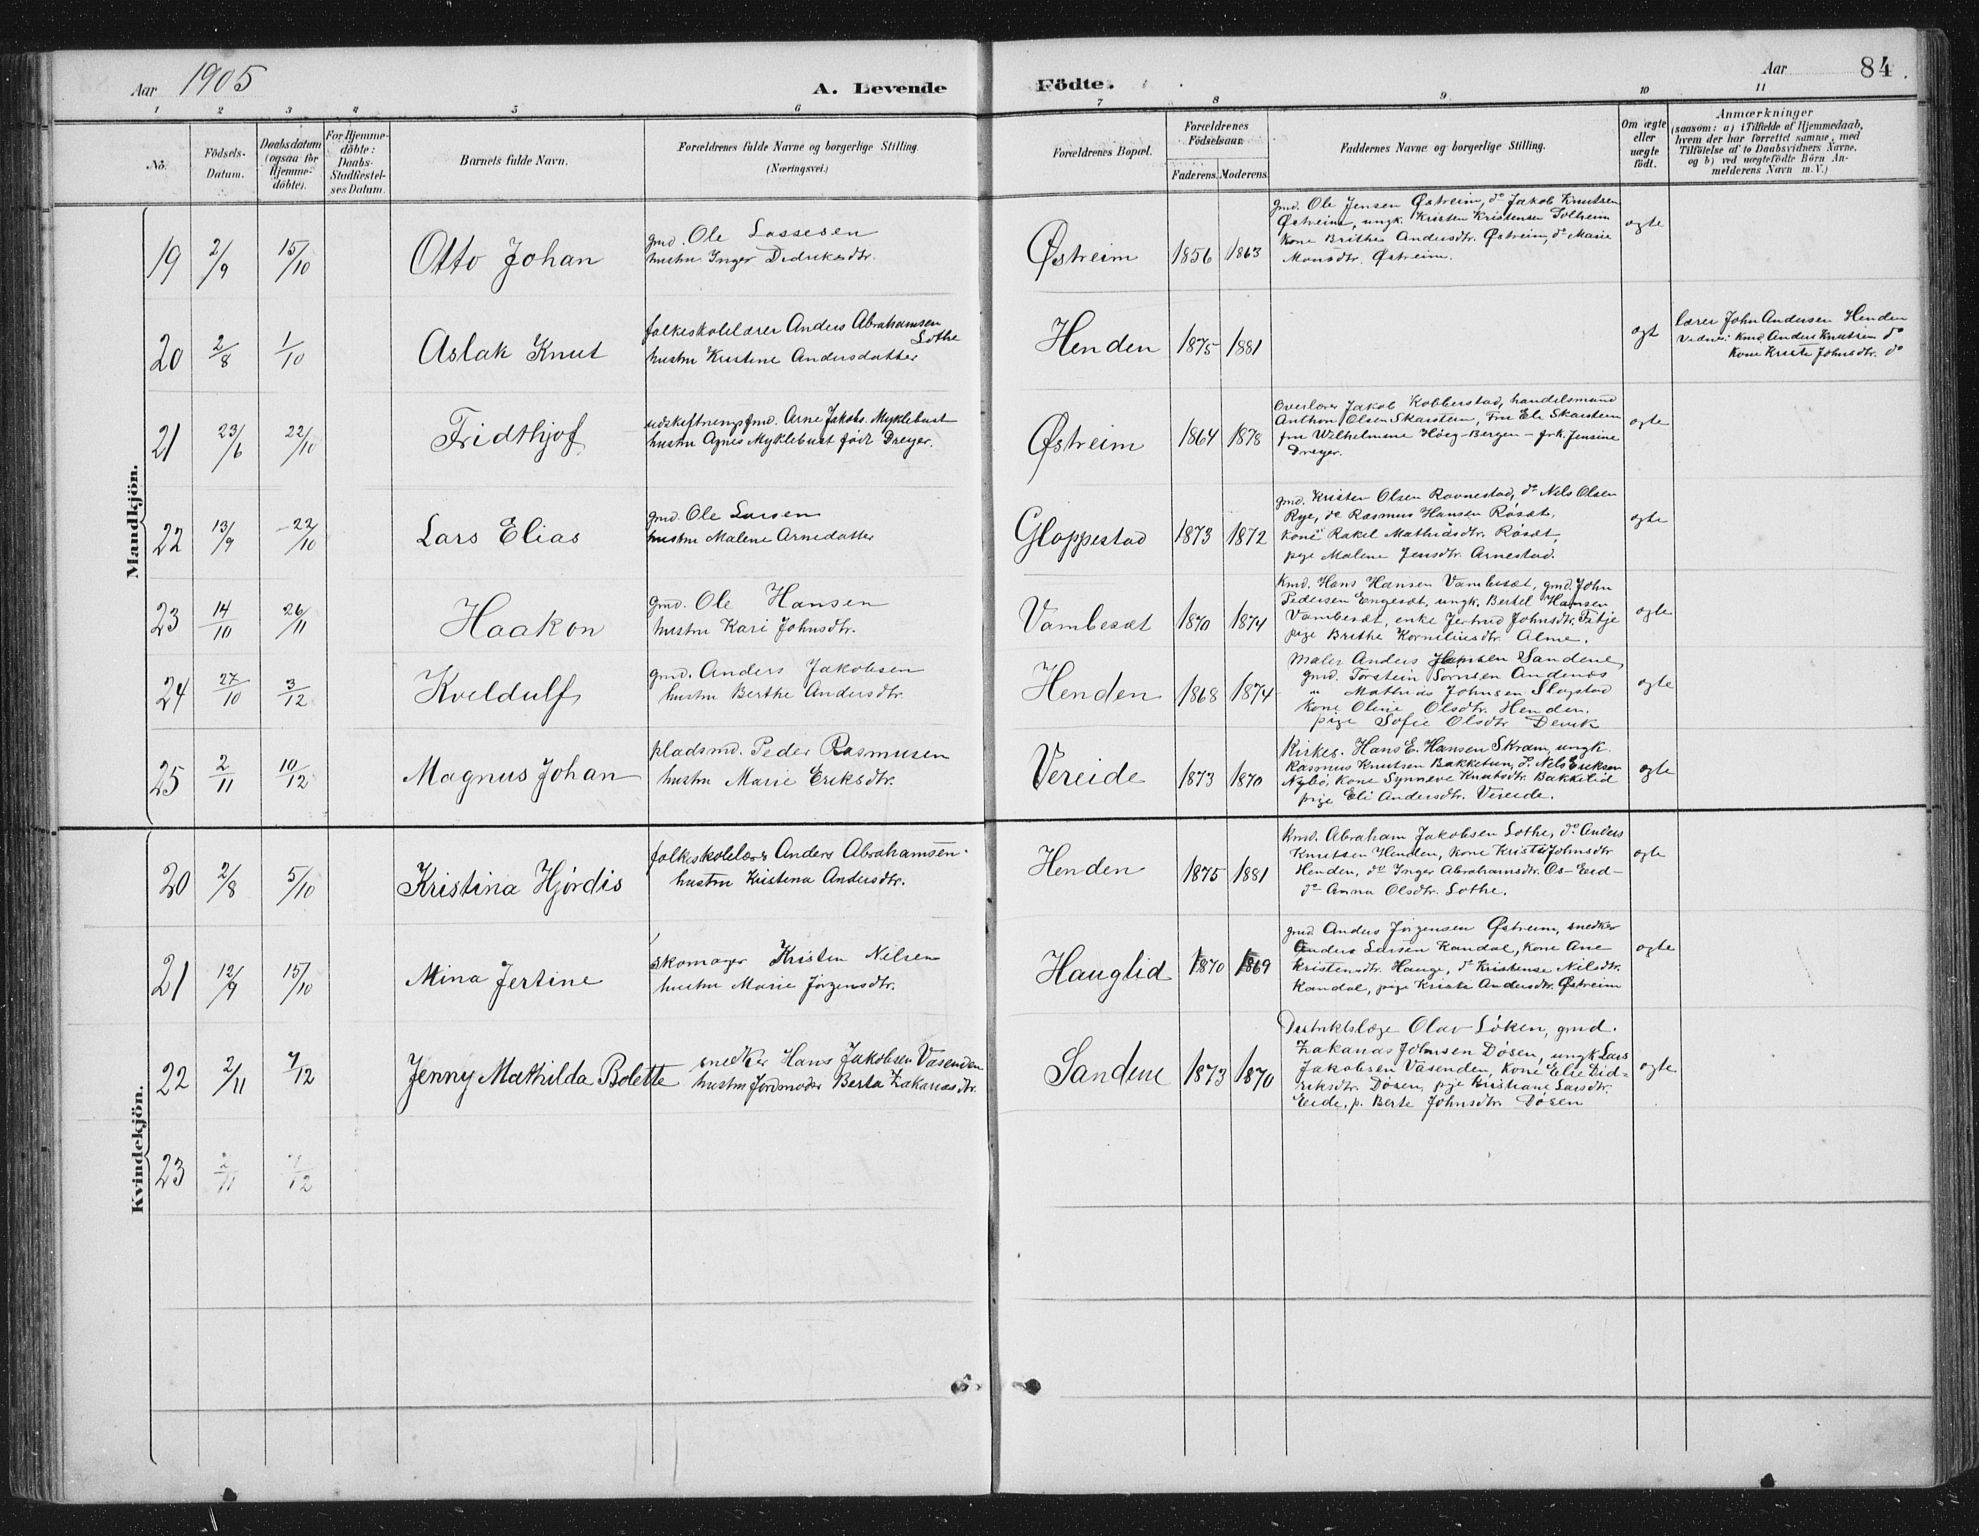 Aar 1905
A. Levende
Födte.
Aar
84.
1 2 3 4 5 6 7 8 9 10 11
No.
Födsels-
Datum.
Daabsdatum
(ogsaa for
Hjemme-
döbte).
For Hjemme-
döbte:
Daabs-
Stadfæstel-
ses Datum.
Barnets fulde Navn.
Forældrenes fulde Navne og borgerlige Stilling.
(Næringsvei.)
Forældrenes Bopæl.
Forældrenes
Födselsaar.
Faderens. Moderens.
Faddernes Navne og borgerlige Stilling.
Om ægte
eller
uægte
födt.
Anmærkninger
(saasom: a) i Tilfælde af Hjemmedaab,
hvem der har forrettet samme, med
Tilföielse af to Daabsvidners Navne,
og b) ved uægtefödte Börn An-
melderens Navn m. V.)
Mandkjön.
19 2/9 15/10 Otto Johan
gmd. Ole Lassesen
hustru Inger Didriksdtr.
Østreim 1856 1863
gmd. Ole Jensen Østreim, do Jakob Knutsen
Østreim, ungk. Kristen Kristensen Solheim
kone Brithe Andersdtr. Østreim, do Marie
Monsdtr. Østreim.
ægte
20 2/8 1/10 Aslak Knut
folkeskolelærer Anders Abrahamsen
Lothe
hustru Kristine Andersdatter
Henden 1875 1881
ægt
lærer John Andersen Henden
Vidner: kmd. Anders Knutsen do
kone Kriste Johnsdtr. do
21 23/6 22/10 Fridthjof
udskiftningsfmd. Arne Jakobs. Myklebust
hustru Agnes Myklebust født Dreyer.
Østreim 1864 1878
Overlærer Jakob Kobberstad, handelsmand
Anthon Olsen Skarsten, Fru Ele Skarsten
fru Wilhelmine Høeg-Bergen - frk. Jensine
Dreyer.
ægte
22 13/9 22/10 Lars Elias
gmd. Ole Larsen
hustru Malene Arnedatter
Gloppestad 1873 1872
gmd. Kristen Olsen Ravnestad, do Nils Olsen
Rye, do Rasmus Hansen Røsæt,
kone Rakel Mathiasdtr. Røsæt,
pige Malene Jensdtr. Arnestad.
ægte
23 14/10 26/11 Haakon
gmd. Ole Hansen
hustru Kari Johnsdtr.
Vambesæt 1870 1874
Kmd. Hans Hansen Vambesæt, gmd. John
Pedersen Engesæt, ungk. Bertel Hansen
Vambesæt, enke Jertrud Johnsdtr. Fitje
pige Brithe Korneliusdtr. Alme.
ægte
24 27/10 3/12 Kveldulf
gmd. Anders Jakobsen
hustru Berthe Andersdtr.
Henden 1868 1874
Maler Anders Hansen Sandene,
gmd. Torstein Sørnsen Andenæs
" Mathias Johnsen Slagstad
kone Oline Olsdtr. Henden.
pige Sofie Olsdtr Devik
ægte
25 2/11 10/12 Magnus Johan
pladsmd. Peder Rasmusen
hustru Marie Eriksdtr.
Vereide 1873 1870
Kirkes. Hans E. Hansen Skram, ungk.
Rasmus Knutsen Bakketun, do Nils Eriksen
Nybø, kone Synneve Knutsdtr. Bakkelid
pige Eli Andersdtr. Vereide.
ægte
Kvindekjön.
20 2/8 5/10 Kristina Hjørdis
folkeskolelærer Anders Abrahamsen
hustru Kristena Andersdtr.
Henden 1875 1881
Kmd. Abraham Jakobsen Lothe, do Anders
Knutsen Henden, kone Kriste Johnsdtr
Henden, do Inger Abrahamsdtr. Os-Eid-
do Anna Olsdtr. Lothe.
ægte
21 12/9 15/10 Mina Jertine
skomager Kristen Nilsen
hustru Marie Jørgensdtr.
Hauglid 1870 1869
gmd Anders Jørgensen Østreim, snedker
Anders Larsen Kandal, kone Ane
Kristensdtr. Hauge, do Kristense Nilsdtr.
Kandal, pige Kristi Andersdtr. Østreim
ægte
22 2/11 7/12 Jenny Mathilda Bolette
snedker Hans Jakobsen Vasenden
hustru Jordmoder Berta Zakariasdtr.
Sandene 1873 1870
Distriktslæge Olav Løken, gmd.
Zakarias Johnsen Døsen, ungk Lars
Jakobsen Vasenden, kone Else Did-
riksdtr. Døsen, pige Kristiane Larsdtr.
Eide, p. Berte Johnsdtr. Døsen
ægte
23 2/11 7/12